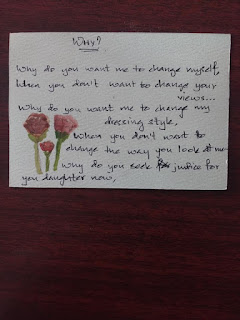 Why?
Why do you want me to change myself,
When you don't want to change your
views...
Why do you want me to change my
dressing style,
When you don't want to
change the way you look at me
why do you seek for justice for
you daughter now,